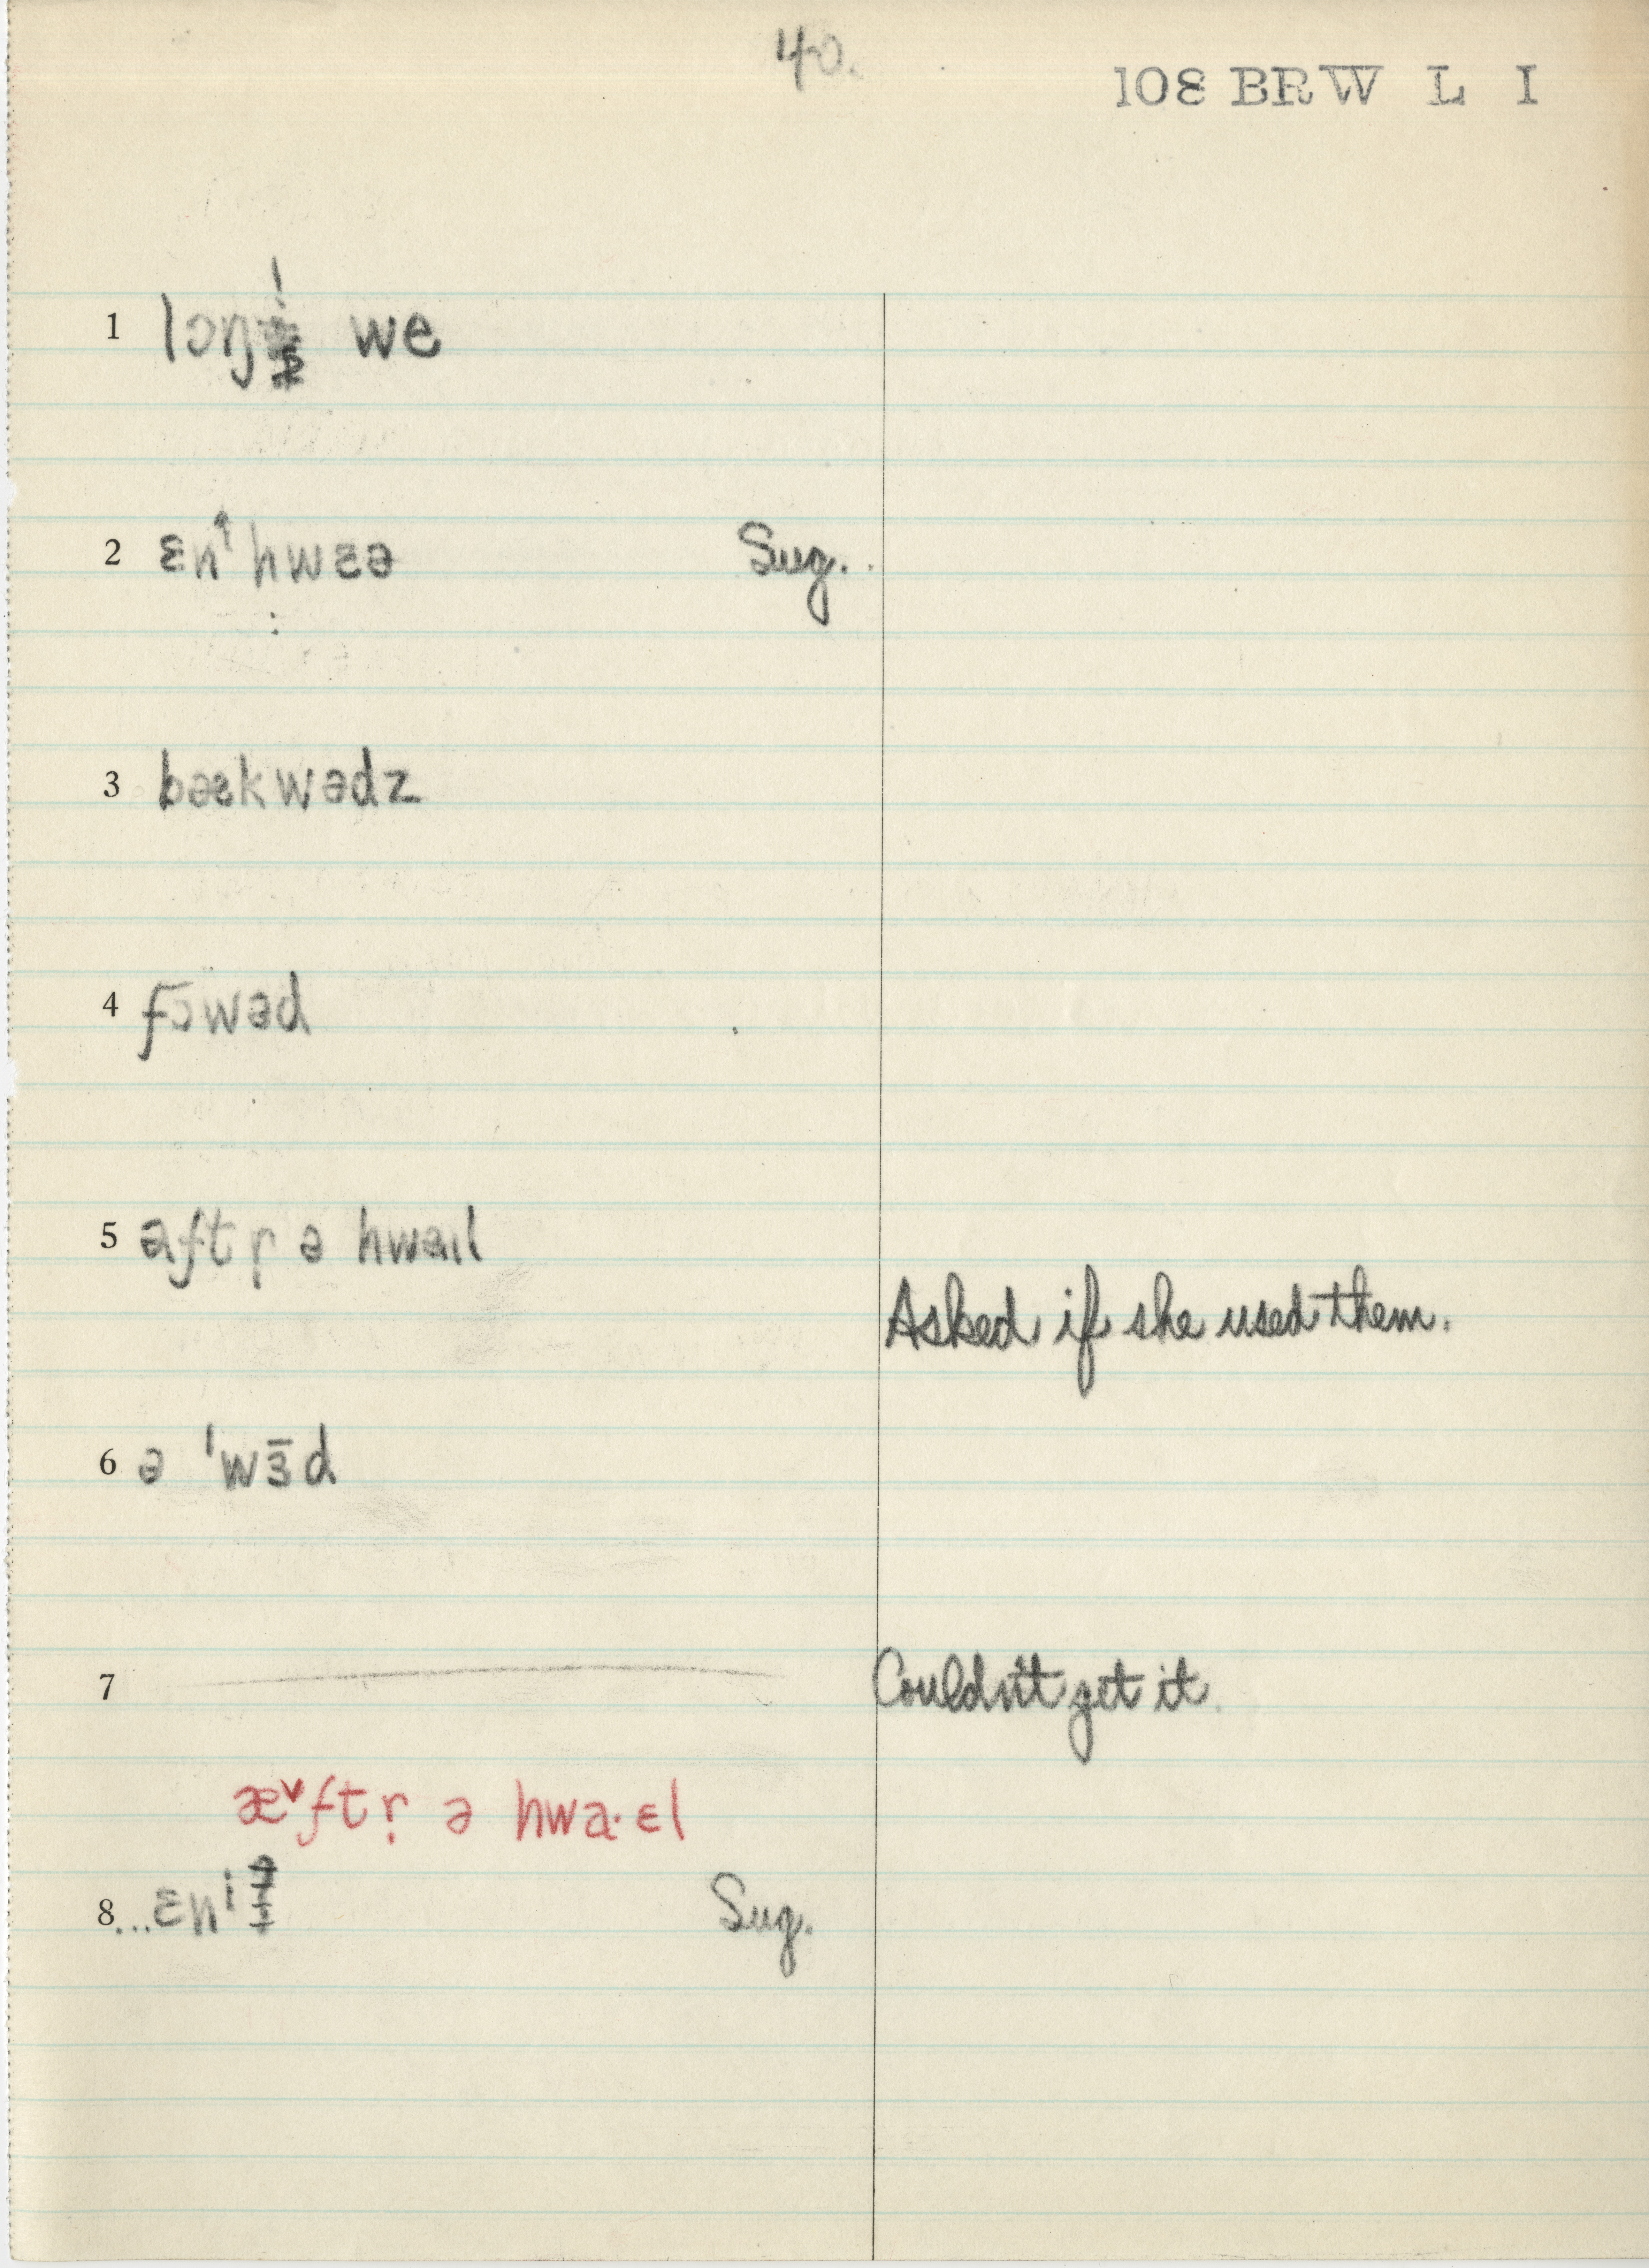 40.
108 BRW L I
1 lɔŋ we
2 ɛn↑hwɛə Sug.
3 bækwədz
4 fɔwəd
5 aftr̩ ə hwaɪl
Asked if she used them.
6 ə ˈwɜ̄d
7 Couldn't get it.
æ˅ftr̩ ə hwa·ɛl
8 ...ɛnˈ Sug.